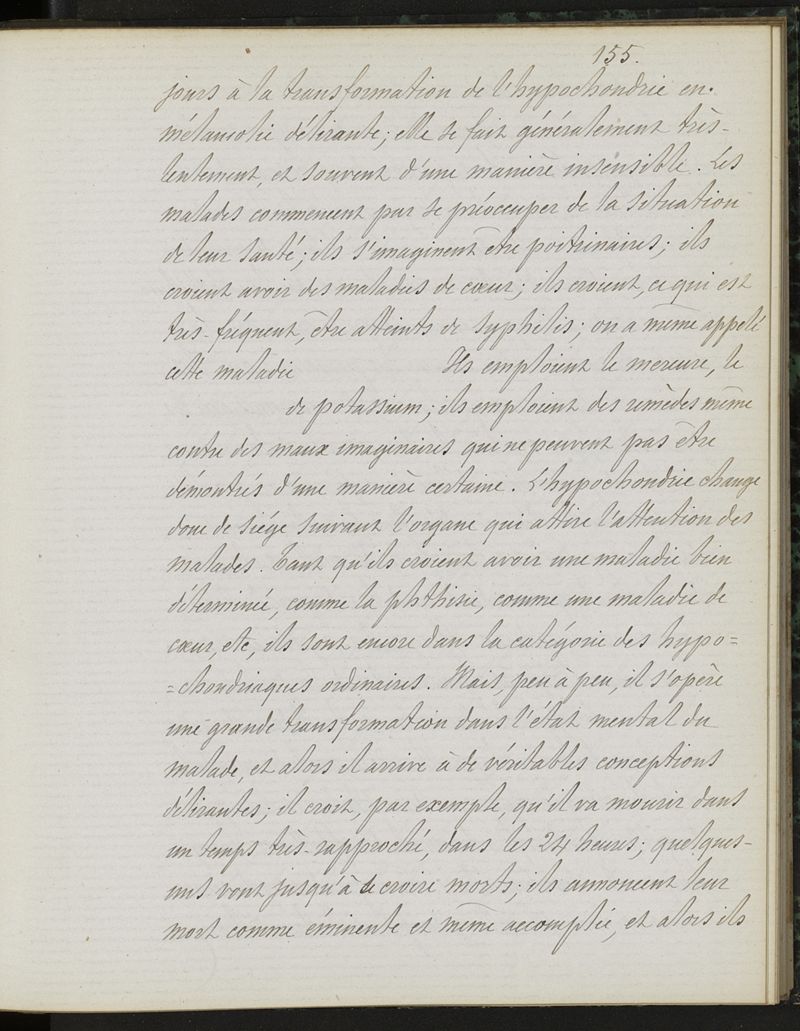 155.
jours à la transformation de l'hypochondrie en
mélancolie délirante; elle se fait généralement très-
lentement, et souvent d'une manière insensible. Les
malades commencent par se préoccuper de la situation
de leur santé; ils s'imaginent être poitrinaires; ils
croient avoir des maladies de cœur; ils croient, ce qui est
très-fréquent, être atteints de syphilis; on a même appelé
cette maladie Ils emploient le mercure, le
de potassium; ils emploient des remèdes même
contre des maux imaginaires qui ne peuvent pas être
démontrés d'une manière certaine. L'hypochondrie change
donc de siége suivant l'organe qui attire l'attention des
malades. Tant qu'ils croient avoir une maladie bien
déterminée, comme la phthisie, comme une maladie de
cœur, etc, ils sont encore dans la catégorie des hypo=
=chondriaques ordinaires. Mais, peu à peu, il s'opère
une grande transformation dans l'état mental du
malade, et alors il arrive à de véritables conceptions
délirantes; il croit, par exemple, qu'il va mourir dans
un temps très-rapproché, dans les 24 heures; quelques-
uns vont jusqu'à se croire morts; ils annoncent leur
mort comme éminente et même accomplie, et alors ils